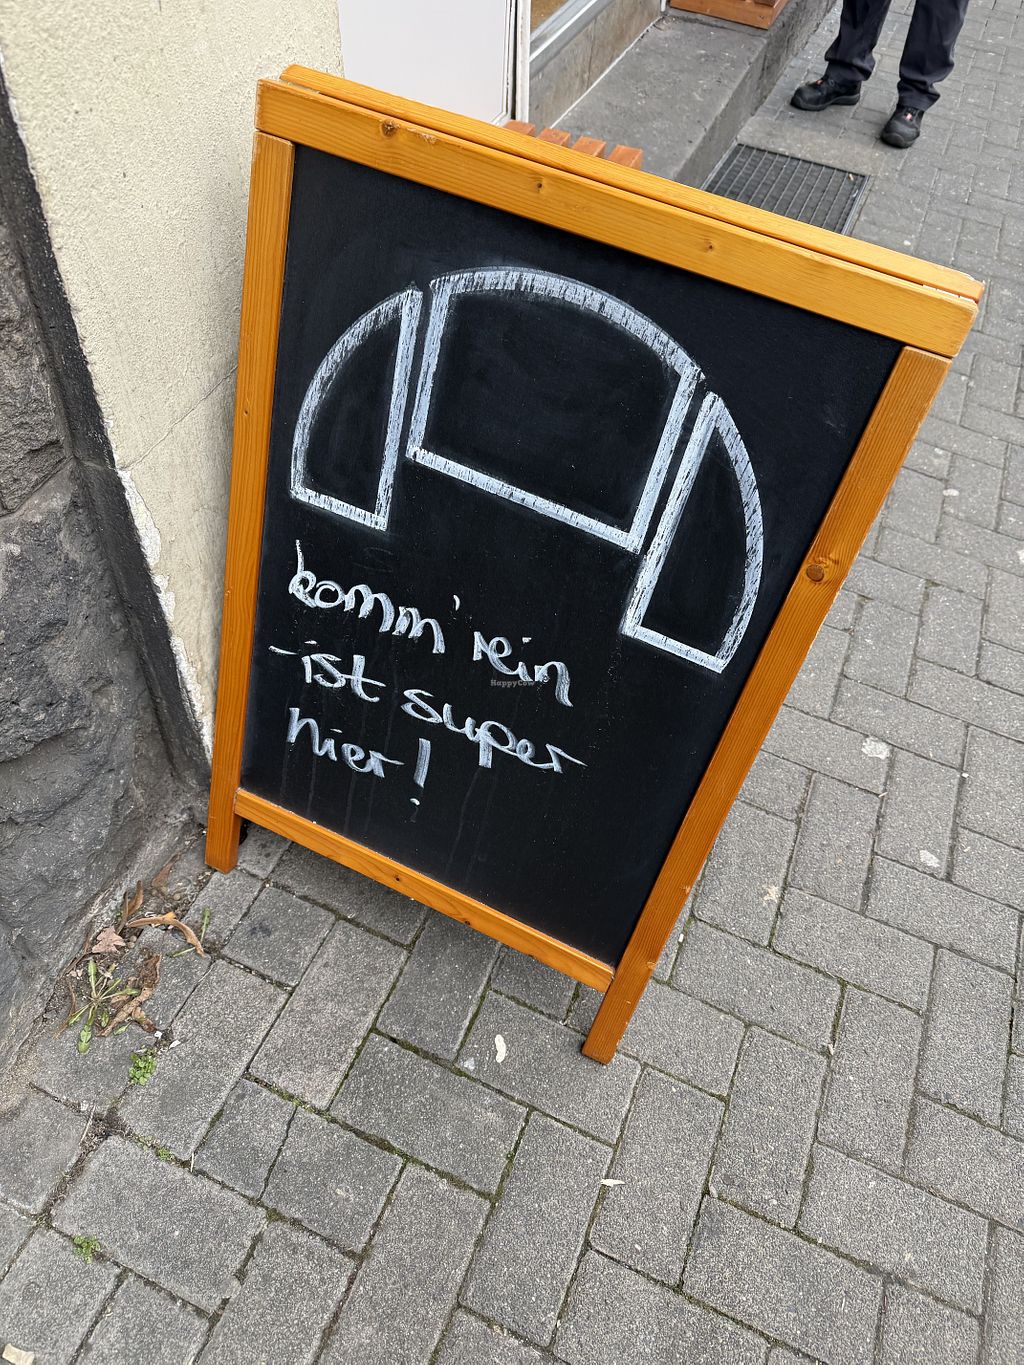 komm' rein
- ist super
hier!
HappyCow